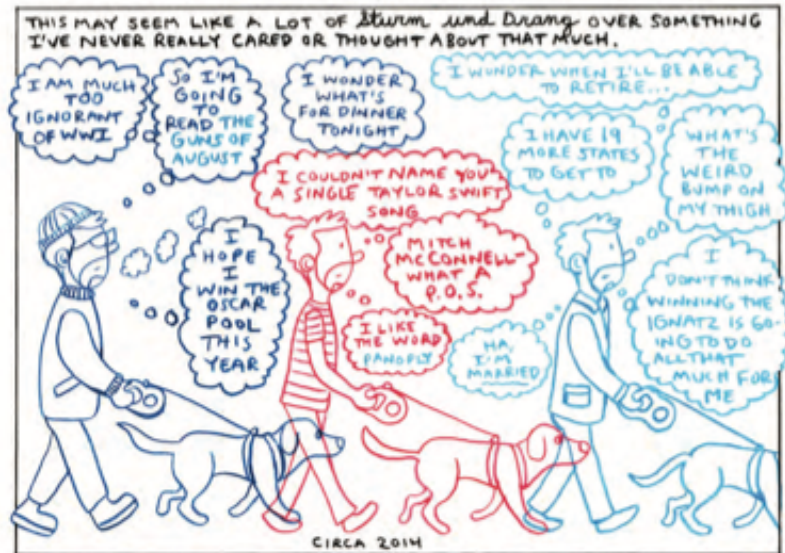 THIS MAY SEEM LIKE A LOT OF Sturm und Drang OVER SOMETHING
I'VE NEVER REALLY CARED OR THOUGHT ABOUT THAT MUCH.
I AM MUCH
TOO
IGNORANT
OF WWI
SO I'M
GOING
TO
READ THE
GUNS OF
AUGUST
I
HOPE
I
WIN THE
OSCAR
POOL
THIS
YEAR
I WONDER
WHAT'S
FOR DINNER
TONIGHT
I COULDN'T NAME YOU
A SINGLE TAYLOR SWIFT
SONG
MITCH
MCCONNELL-
WHAT A
P.O.S.
I LIKE
THE WORD
PANOPLY
I WONDER WHEN I'LL BE ABLE
TO RETIRE...
I HAVE 19
MORE STATES
TO GET TO
WHAT'S
THE
WEIRD
BUMP ON
MY THIGH
HA,
I'M
MARRIED
I
DON'T THINK
WINNING THE
IGNATZ IS GO-
ING TO DO
ALL THAT
MUCH FOR
ME
CIRCA 2014